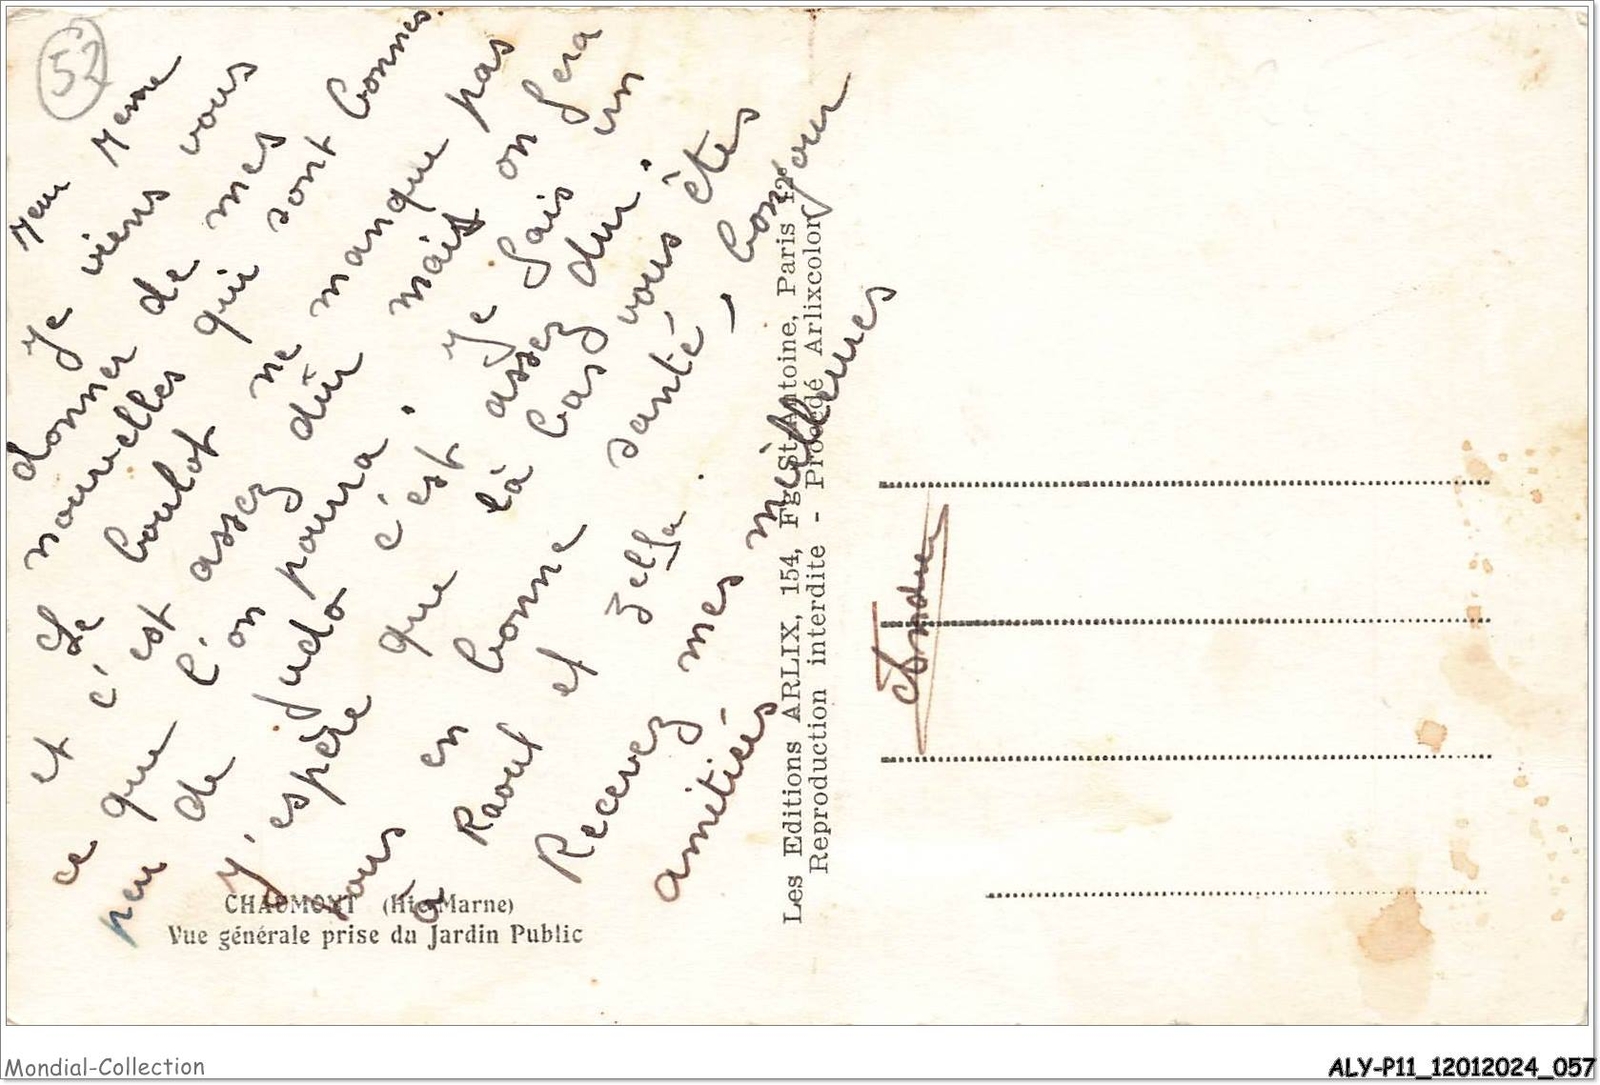 52
Mr Mme
Je viens vous
donner de mes
nouvelles qui sont bonnes.
Le boulot ne manque pas
et c'est assez dûr mais on fera
ce que l'on pourra. Je fais un
peu de judo c'est assez dur.
J'espère que là bas vous êtes
tous en bonne santé, - bonjour
à Raoul et Zella.
Recevez mes meilleures
amitiés
André
CHAUMONT (Hte-Marne)
Vue générale prise du Jardin Public
Les Editions ARLIX, 154, Fg St-Antoine, Paris 12e
Reproduction interdite - Procédé Arlixcolor
Mondial-Collection
ALY-P11_12012024_057